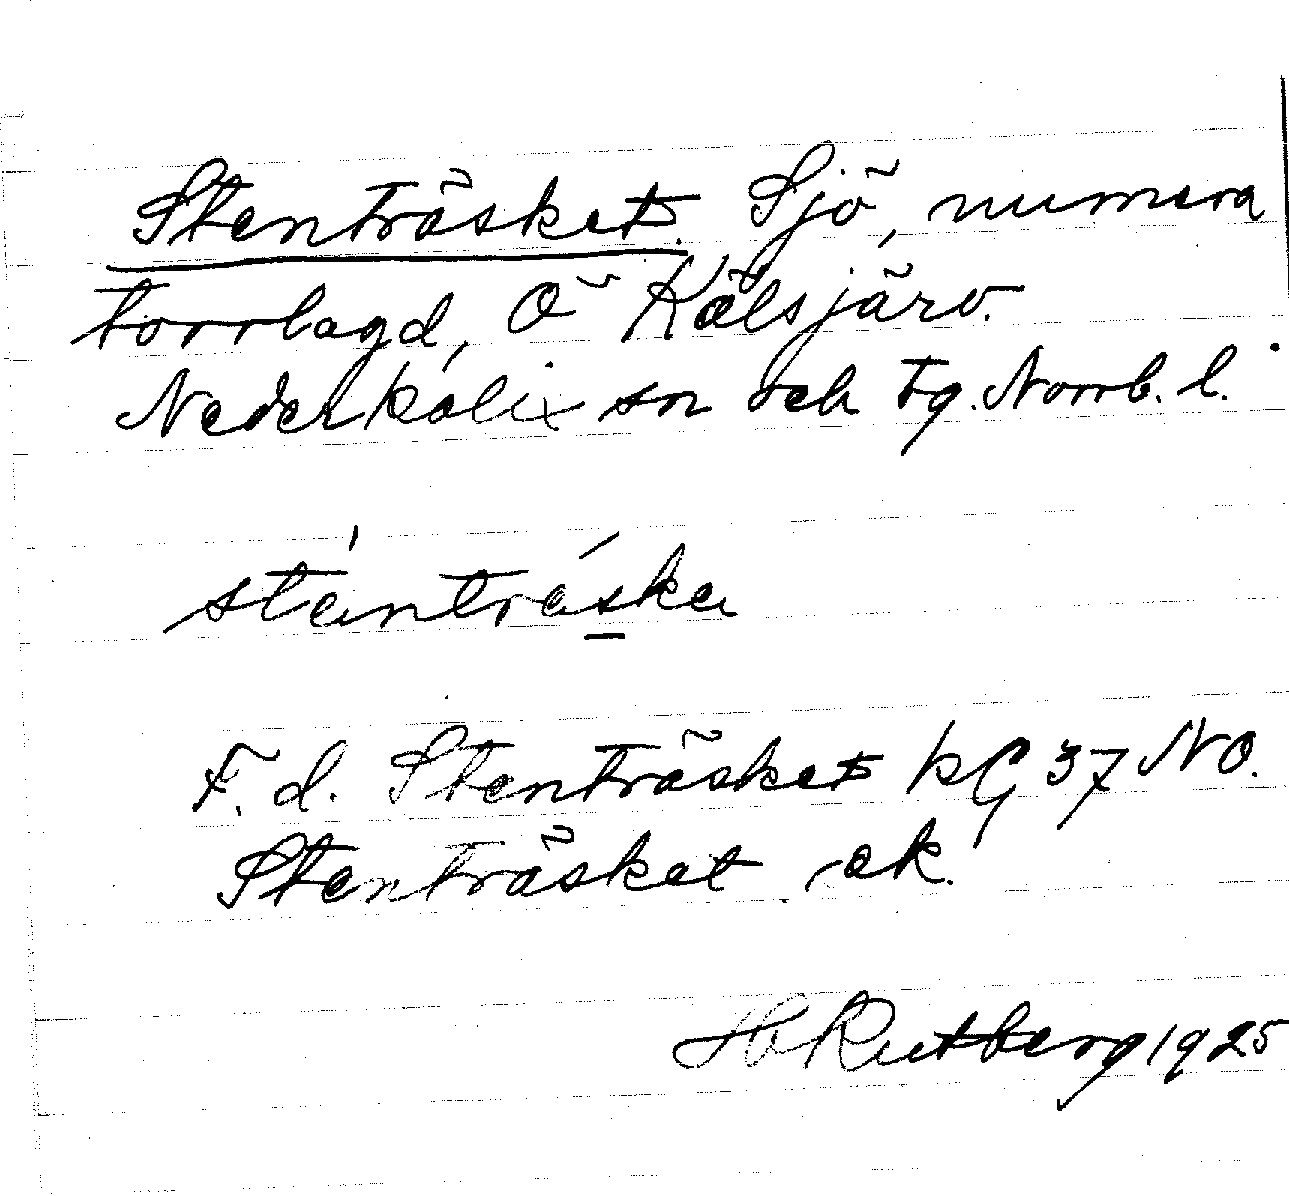 Stenträsket. Sjö, numera
torrlagd, Ö Kälsjärv.
Nederkalix sn och tg. Norrb. l.
sténtráska
F. d. Stenträsket kG 37 NO.
Stenträsket ek.
H Rutberg 1925